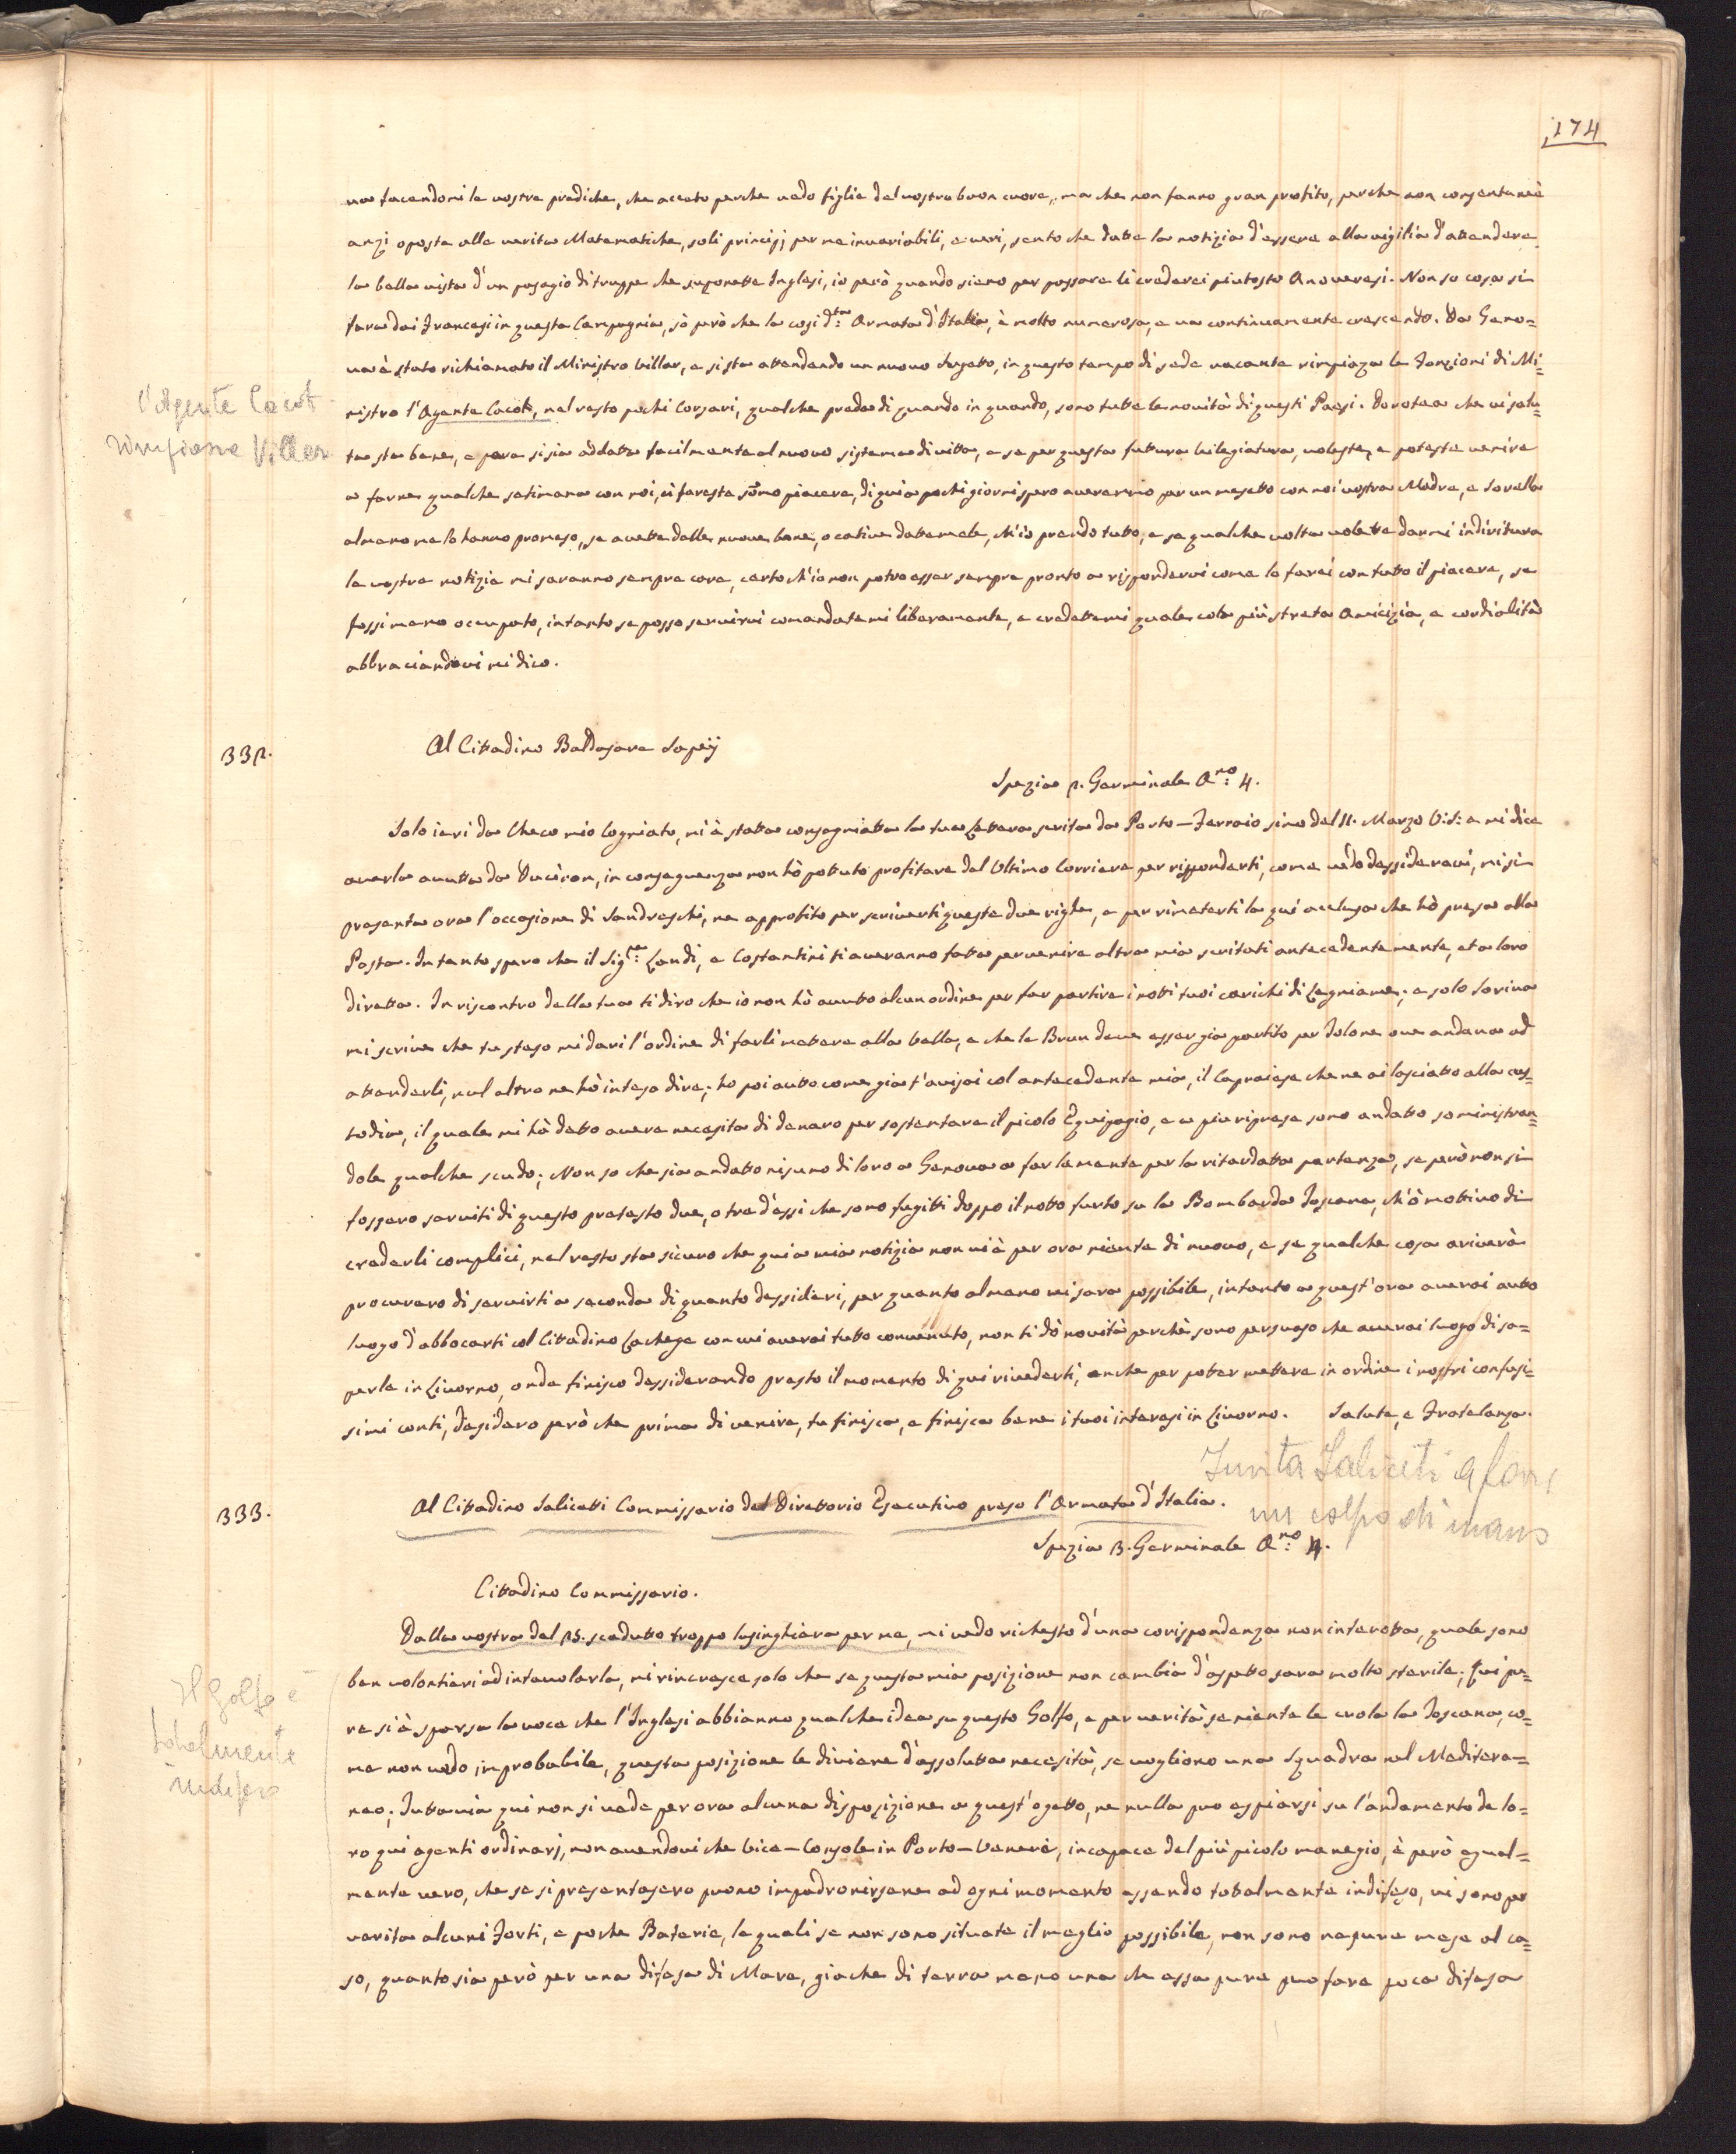 174
va facendomi le vostre prediche, che acceto perche vedo figlie del vostro buon cuore, ma che non fanno gran profito, perche non consentanee
anzi oposte alle verita Matematiche, soli principj per me invariabili, e veri, sento che datte la notizia d'essere alla vigilia d'attendere
la bella vista d'un pasagio di truppe che suponette Inglesi, io però quando sieno per passare li crederei piutosto Anoveresi. Non so cosa si
fara dai Francesi in questa Campagnia, sò però che la cosi d:ta Armata d'Italia, è molto numerosa, e va continuamente crescendo. Da Geno=
va è stato richiamato il Ministro villar, e si sta attendendo un nuovo Sogetto, in questo tempo di sede vacante rimpiaza le Fonzioni di Mi=
nistro l'Agente Cacott, nel resto pochi Corsari, qualche preda di quando in quando, sono tutte le novità di questi Paesi. Dorotea che vi salu=
l'Agente Cacott
rimpiazza Villar
ta sta bene, e pare si sia addatta facilmente al nuovo sistema di vitta, e se per questa futura vilegiatura, voleste, e poteste venire
a farne qualche setimana con noi, ci fareste somo piacere, di qui a pochi giorni spero averemo per un mesetto con noi vostra Madre, e Sorella
almeno me lo hanno promeso, se avette delle nuove bone, o cative datemele, ch'io prendo tutto, e se qualche volta volette darmi indiritura
le vostre notizie mi saranno sempre care, certo ch'io non potro esser sempre pronto a rispondervi come lo farei con tutto il piacere, se
fossi meno ocupato, intanto se posso servirvi comandatemi liberamente, e credettemi quale colla più streta Amicizia, e cordialità
abbraciandovi mi dico.
332.
Al Cittadino Baldasare Sapeij
Spezia 2. Germinale A:no 4.
Solo ieri da Checo mio Cogniato, mi è statta consegniatta la tua Lettera scrita da Porto-Ferraio sino del 11. Marzo V:S: e mi dice
averla avutta da Ducèron, in conseguenza non hò pottuto profitare del Ultimo Corriere per risponderti, come vedo dessideravi, mi si
presenta ora l'occasione di Sandreschi, ne approfito per scriverti queste due righe, e per rimeterti la qui acclusa che hò presa alla
Posta. Intanto spero che il Sig:re Landi, e Costantini ti averanno fatta pervenire altra mia scritati antecedentemente, et a loro
diretta. In riscontro della tua ti diro che io non hò avutto alcun ordine per far partire i notti tuoi carichi di Legniame; e solo Savina
mi scrive che tu steso mi dari l'ordine di farli mettere alla vella, e che le Brun deve esser gia partito per Tolone ove andava ad
attenderli, nul altro ne hò inteso dire; ho poi autto come gia t'avisai col antecedente mia, il Capraiese che ne ai lasciatto alla cus=
todia, il quale mi hà detto avere necesita di denaro per sostentare il picolo Equipagio, e a piu riprese sono andatto soministran=
dole qualche scudo; Non so che sia andatto nisuno di loro a Genova a far lamente per la ritardatta partenza, se però non si
fossero serviti di questo pretesto due, o tre d'essi che sono fugitti doppo il notto furto su la Bombarda Toscana, ch'ò mottivo di
crederli complici, nel resto sta sicuro che qui a mia notizia non vi è per ora niente di nuovo, e se qualche cosa ariverà
procurero di servirti a seconda di quanto dessideri, per quanto almeno mi sara possibile, intanto a quest'ora averai auto
luogo d'abbocarti col Cittadino Lachege con cui averai tutto convenuto, non ti dò novità perchè sono persuaso che averai luogo di sa=
perle in Livorno, onde finisco dessiderando presto il momento di qui rivederti, anche per poter mettere in ordine i nostri confusi=
simi conti, desidero però che prima di venire, tu finisca, e finisca bene i tuoi interesi in Livorno. Salute, e Fratelanza.
Invita Saliceti a fare
un colpo di mano
333.
Al Cittadino Salicetti Commissario del Direttorio Esecutivo preso l'Armata d'Italia.
Spezia 3. Germinale A:no 4.
Cittadino Commissario.
Dalla vostra del 25. scadutto troppo lusinghiera per me, mi vedo richesto d'una corispondenza non interotta, quale sono
ben volontieri ad intavolarla, mi rincresce solo che se questa mia posizione non cambia d'aspetto sara molto sterile; Qui pu=
Il Golfo è
totalmente
indifeso
re si è sparsa la voce che l'Inglesi abbianno qualche idea su questo Golfo, e per verità se niente le crola la Toscana, co=
me non vedo improbabile, questa posizione le diviene d'assoluta necesità, se vogliono una Squadra nel Meditera=
neo; Tuttavia qui non si vede per ora alcuna disposizione a quest'ogetto, ne nulla puo espiarsi su l'andamento de lo=
ro qui agenti ordinarj, non avendovi che Vice-Console in Porto-Venere, incapace del più picolo manegio, è però egual=
mente vero, che se si presentasero puono impadronirsene ad ogni momento essendo totalmente indifeso, vi sono per
verita alcuni Forti, e poche Baterie, le quali se non sono situate il meglio possibile, non sono nepure mese al ca=
so, quanto sia però per una difesa di Mare, gia che di terra meno una che essa pure puo fare poca difesa